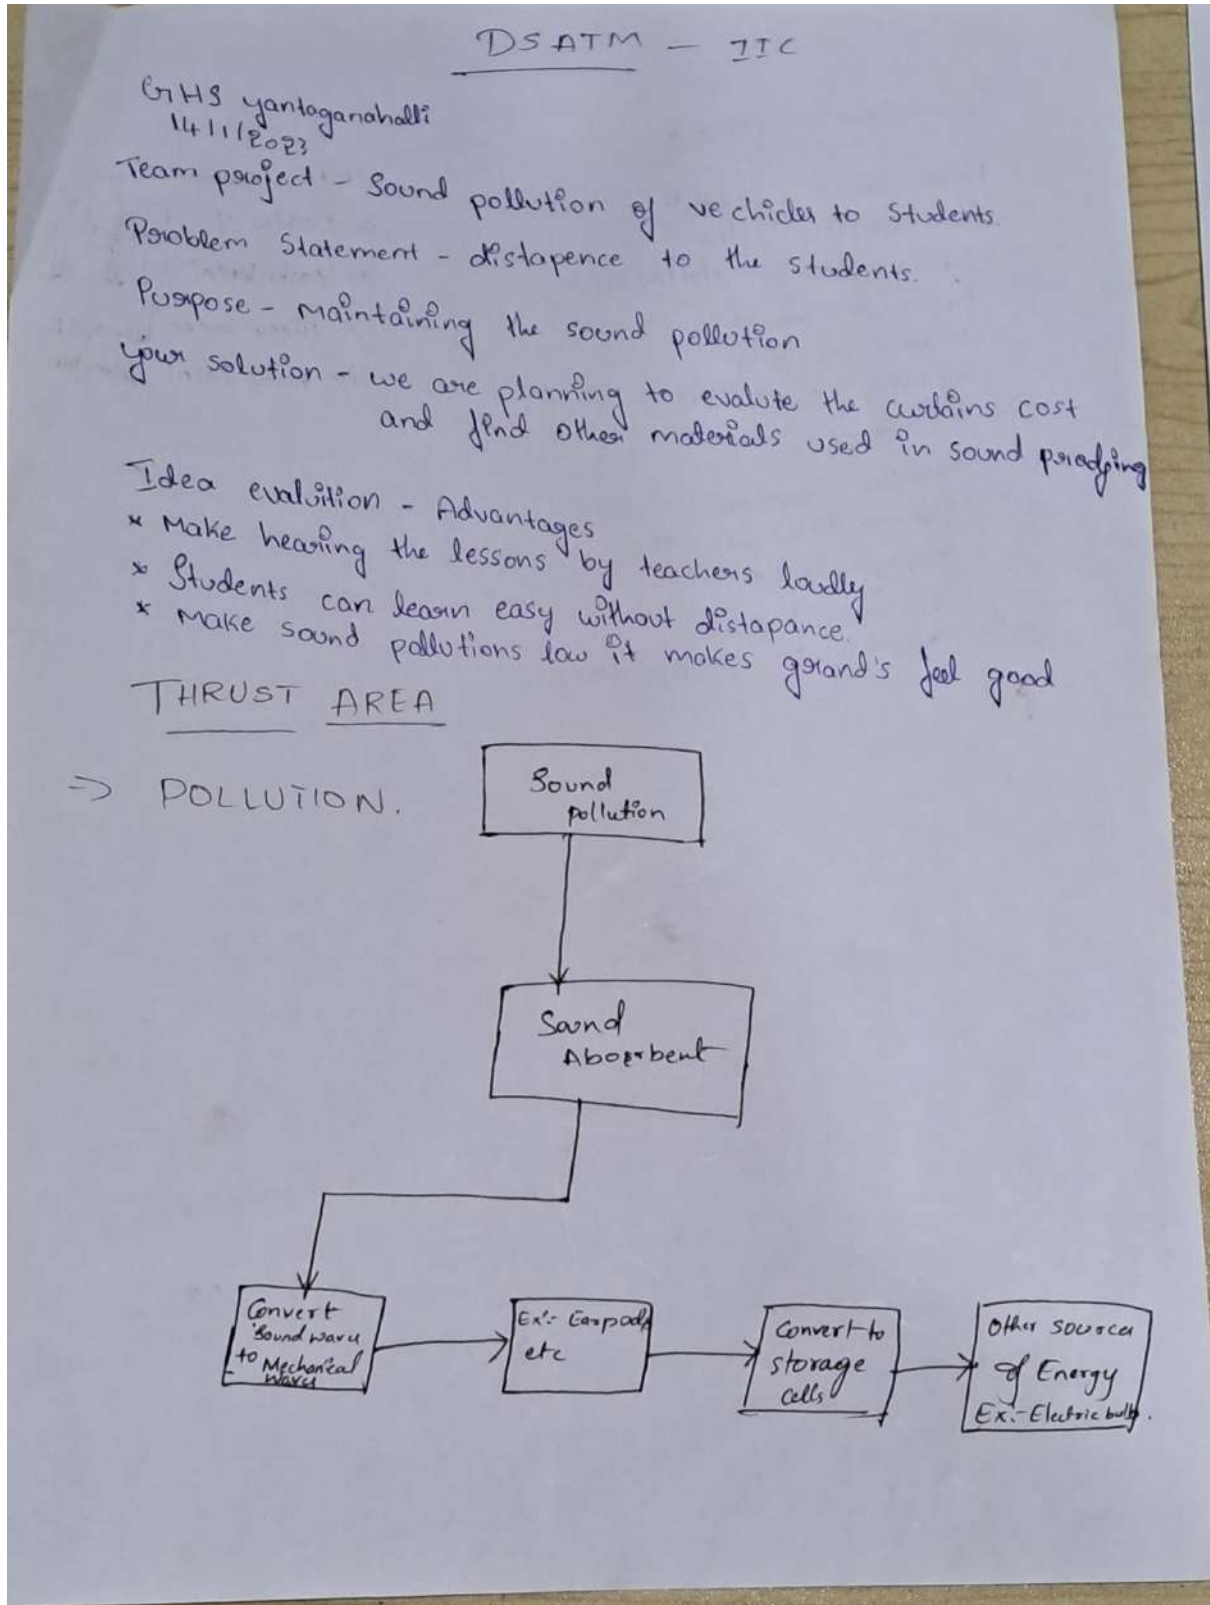 DSATM - IIC
GHS yantaganahalli
14/1/2023
Team project - Sound pollution of vechicles to students.
Problem Statement - distapence to the students.
Purpose - Maintaining the sound pollution
your solution - we are planning to evalute the curtains cost
and find other materials used in sound proofing
Idea evalvition - Advantages
* Make hearing the lessons by teachers loudly
* Students can learn easy without distapance.
* Make sound pollutions low it makes grand's feel good
THRUST AREA
=> POLLUTION.
Sound
pollution
Sound
Aboerbent
Convert
Sound waves
to Mechanical
waves
Ex:- Earpods
etc
Convert to
storage
cells
Other sources
of Energy
Ex:- Electric bulb.